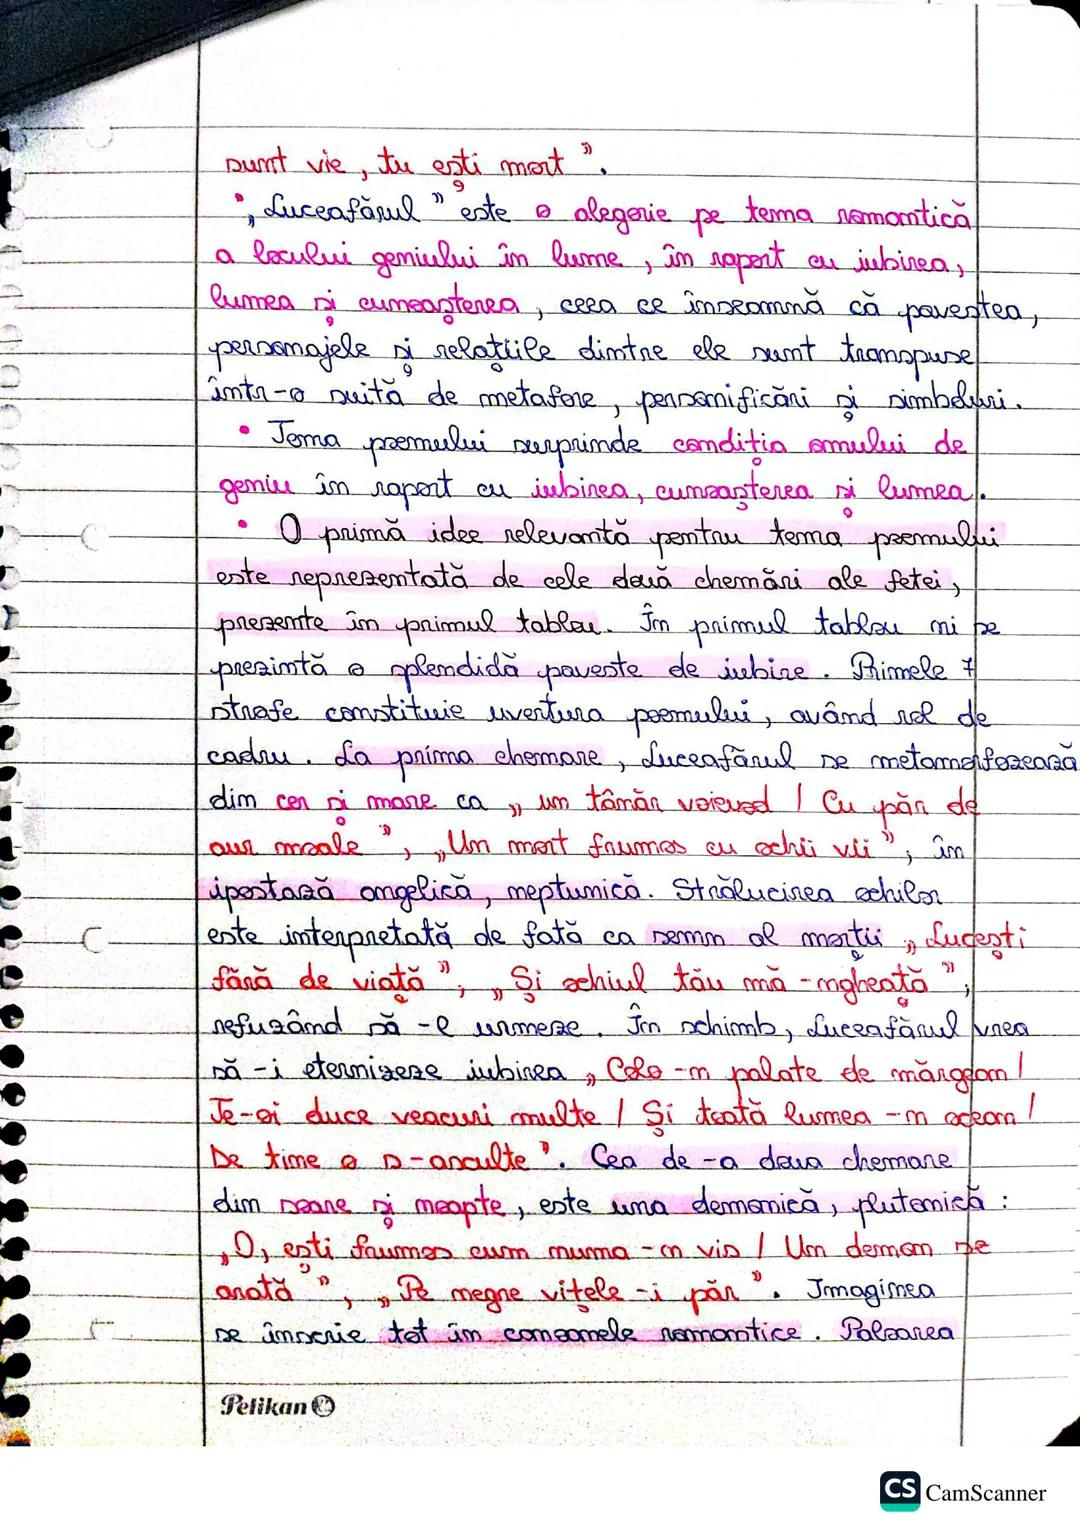 sunt vie, tu ești mort”.
• „Luceafărul” este o alegorie pe tema romantică
a locului geniului în lume, în raport cu iubirea,
lumea și cunoașterea, ceea ce înseamnă că povestea,
personajele și relațiile dintre ele sunt transpuse
într-o suită de metafore, personificări și simboluri.
• Tema poemului surprinde condiția omului de
geniu în raport cu iubirea, cunoașterea și lumea.
• O primă idee relevantă pentru tema poemului
este reprezentată de cele două chemări ale fetei,
prezente în primul tablou. În primul tablou ni se
prezintă o splendidă poveste de iubire. Primele 7
strofe constituie uvertura poemului, având rol de
cadru. La prima chemare, Luceafărul se metamorfozează
din cer și mare ca „un tânăr voievod / Cu păr de
aur moale”, „Un mort frumos cu ochii vii”, în
ipostază angelică, neptunică. Strălucirea ochilor
este interpretată de fată ca semn al morții „Lucești
fără de viață”, „Și ochiul tău mă-ngheață”,
refuzând să-l urmeze. În schimb, Luceafărul vrea
să-i eternizeze iubirea „Colo-n palate de mărgean/
Te-oi duce veacuri multe / Și toată lumea-n ocean/
De tine o s-asculte”. Cea de-a doua chemare
din soare și noapte, este una demonică, plutonică:
„O, ești frumos cum numa-n vis / Un demon se
arată”, „Pe negre vițele-i păr”. Imaginea
se înscrie tot în canoanele romantice. Paloarea
Pelikan
CS CamScanner